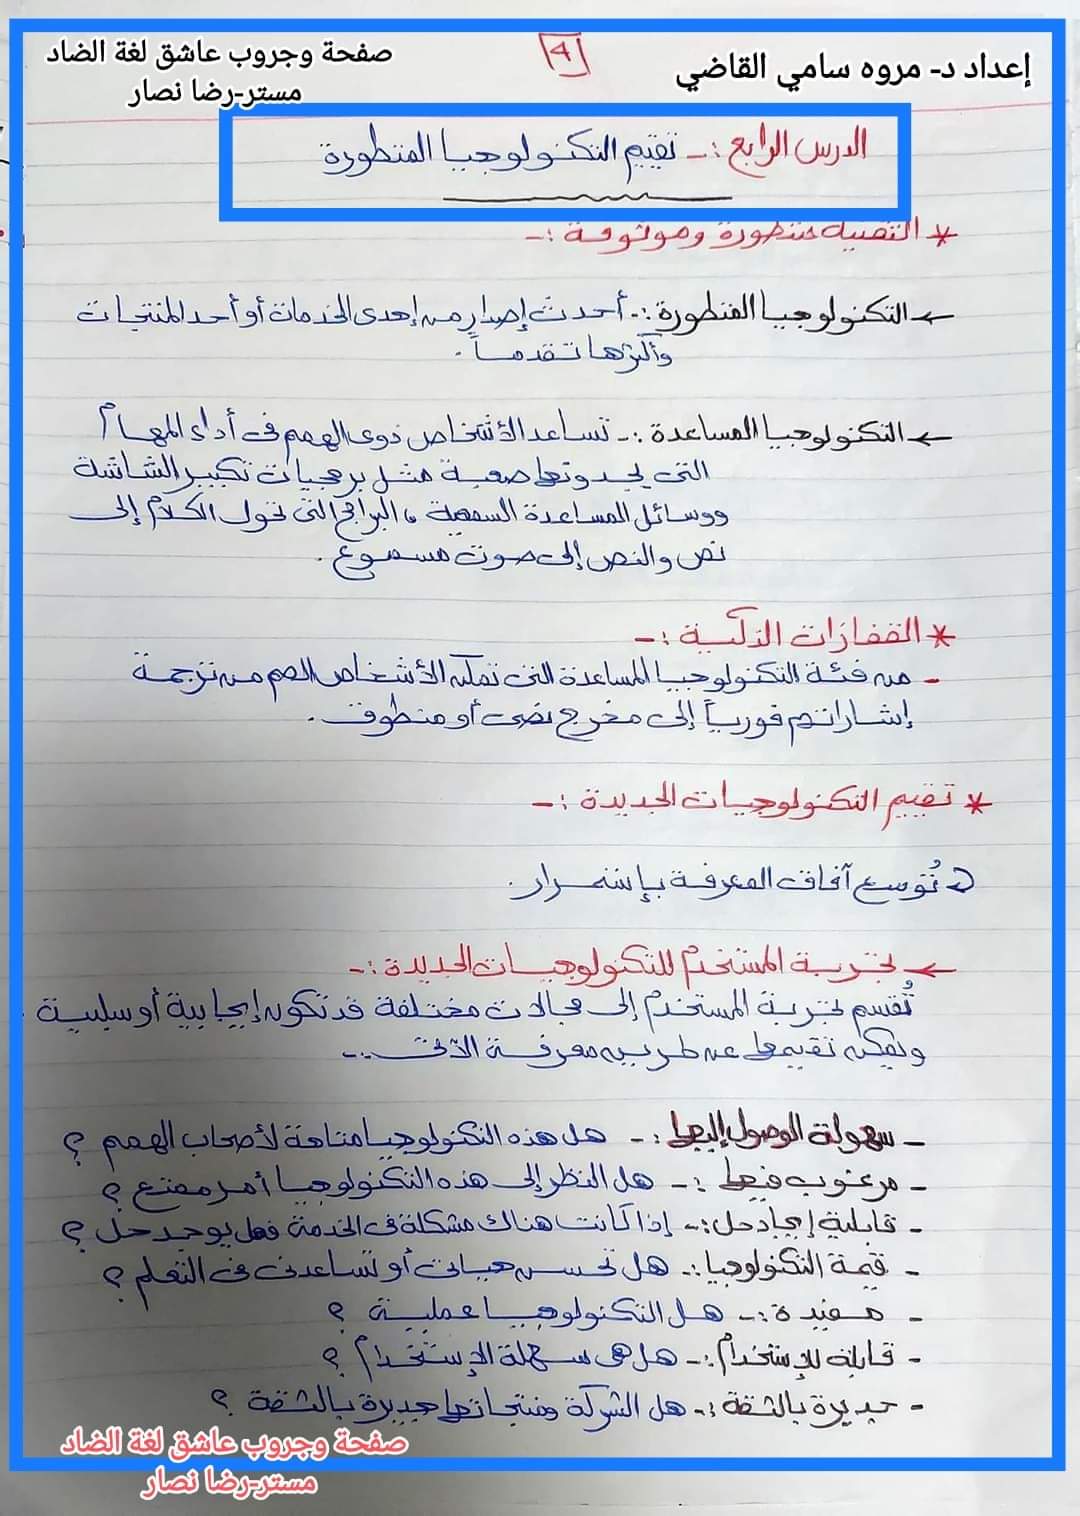 صفحة وجروب عاشق لغة الضاد
مستر-رضا نصار
4
إعداد د- مروه سامي القاضي
الدرس الرابع :- تقييم التكنولوجيا المتطورة
* التقنية متطورة وموثوقة :-
← التكنولوجيا المتطورة :- أحدث إصدار من إحدى الخدمات أو أحد المنتجات
وأكثرها تقدماً .
← التكنولوجيا المساعدة :- تساعد الأشخاص ذوى الهمم فى أداء المهام
التى يجدونها صعبة مثل برمجيات تكبير الشاشة
ووسائل المساعدة السمعية ، البرامج التى تحول الكلام إلى
نص والنص إلى صوت مسموع .
* القفازات الذكية :-
- من فئة التكنولوجيا المساعدة التى تمكن الأشخاص الصم من ترجمة
إشاراتهم فورياً إلى مخرج نصى أو منطوق .
* تقييم التكنولوجيات الجديدة :-
تُوسع آفاق المعرفة بإستمرار .
← تجربة المستخدم للتكنولوجيات الجديدة :-
تُقسم تجربة المستخدم إلى مجالات مختلفة قد تكون إيجابية أو سلبية .
ويمكن تقييمها عن طريق معرفة الآتى :-
- سهولة الوصول إليها :- هل هذه التكنولوجيا متاحة لأصحاب الهمم ؟
- مرغوب فيها :- هل النظر إلى هذه التكنولوجيا أمر ممتع ؟
- قابلية إيجاد حل :- إذا كانت هناك مشكلة فى الخدمة فهل يوجد حل ؟
- قيمة التكنولوجيا :- هل تحسن حياتى أو تساعدنى فى التعلم ؟
- مفيدة :- هل التكنولوجيا عملية ؟
- قابلة للإستخدام :- هل هى سهلة الإستخدام ؟
- جديرة بالثقة :- هل الشركة ومنتجاتها جديرة بالثقة ؟
صفحة وجروب عاشق لغة الضاد
مستر-رضا نصار